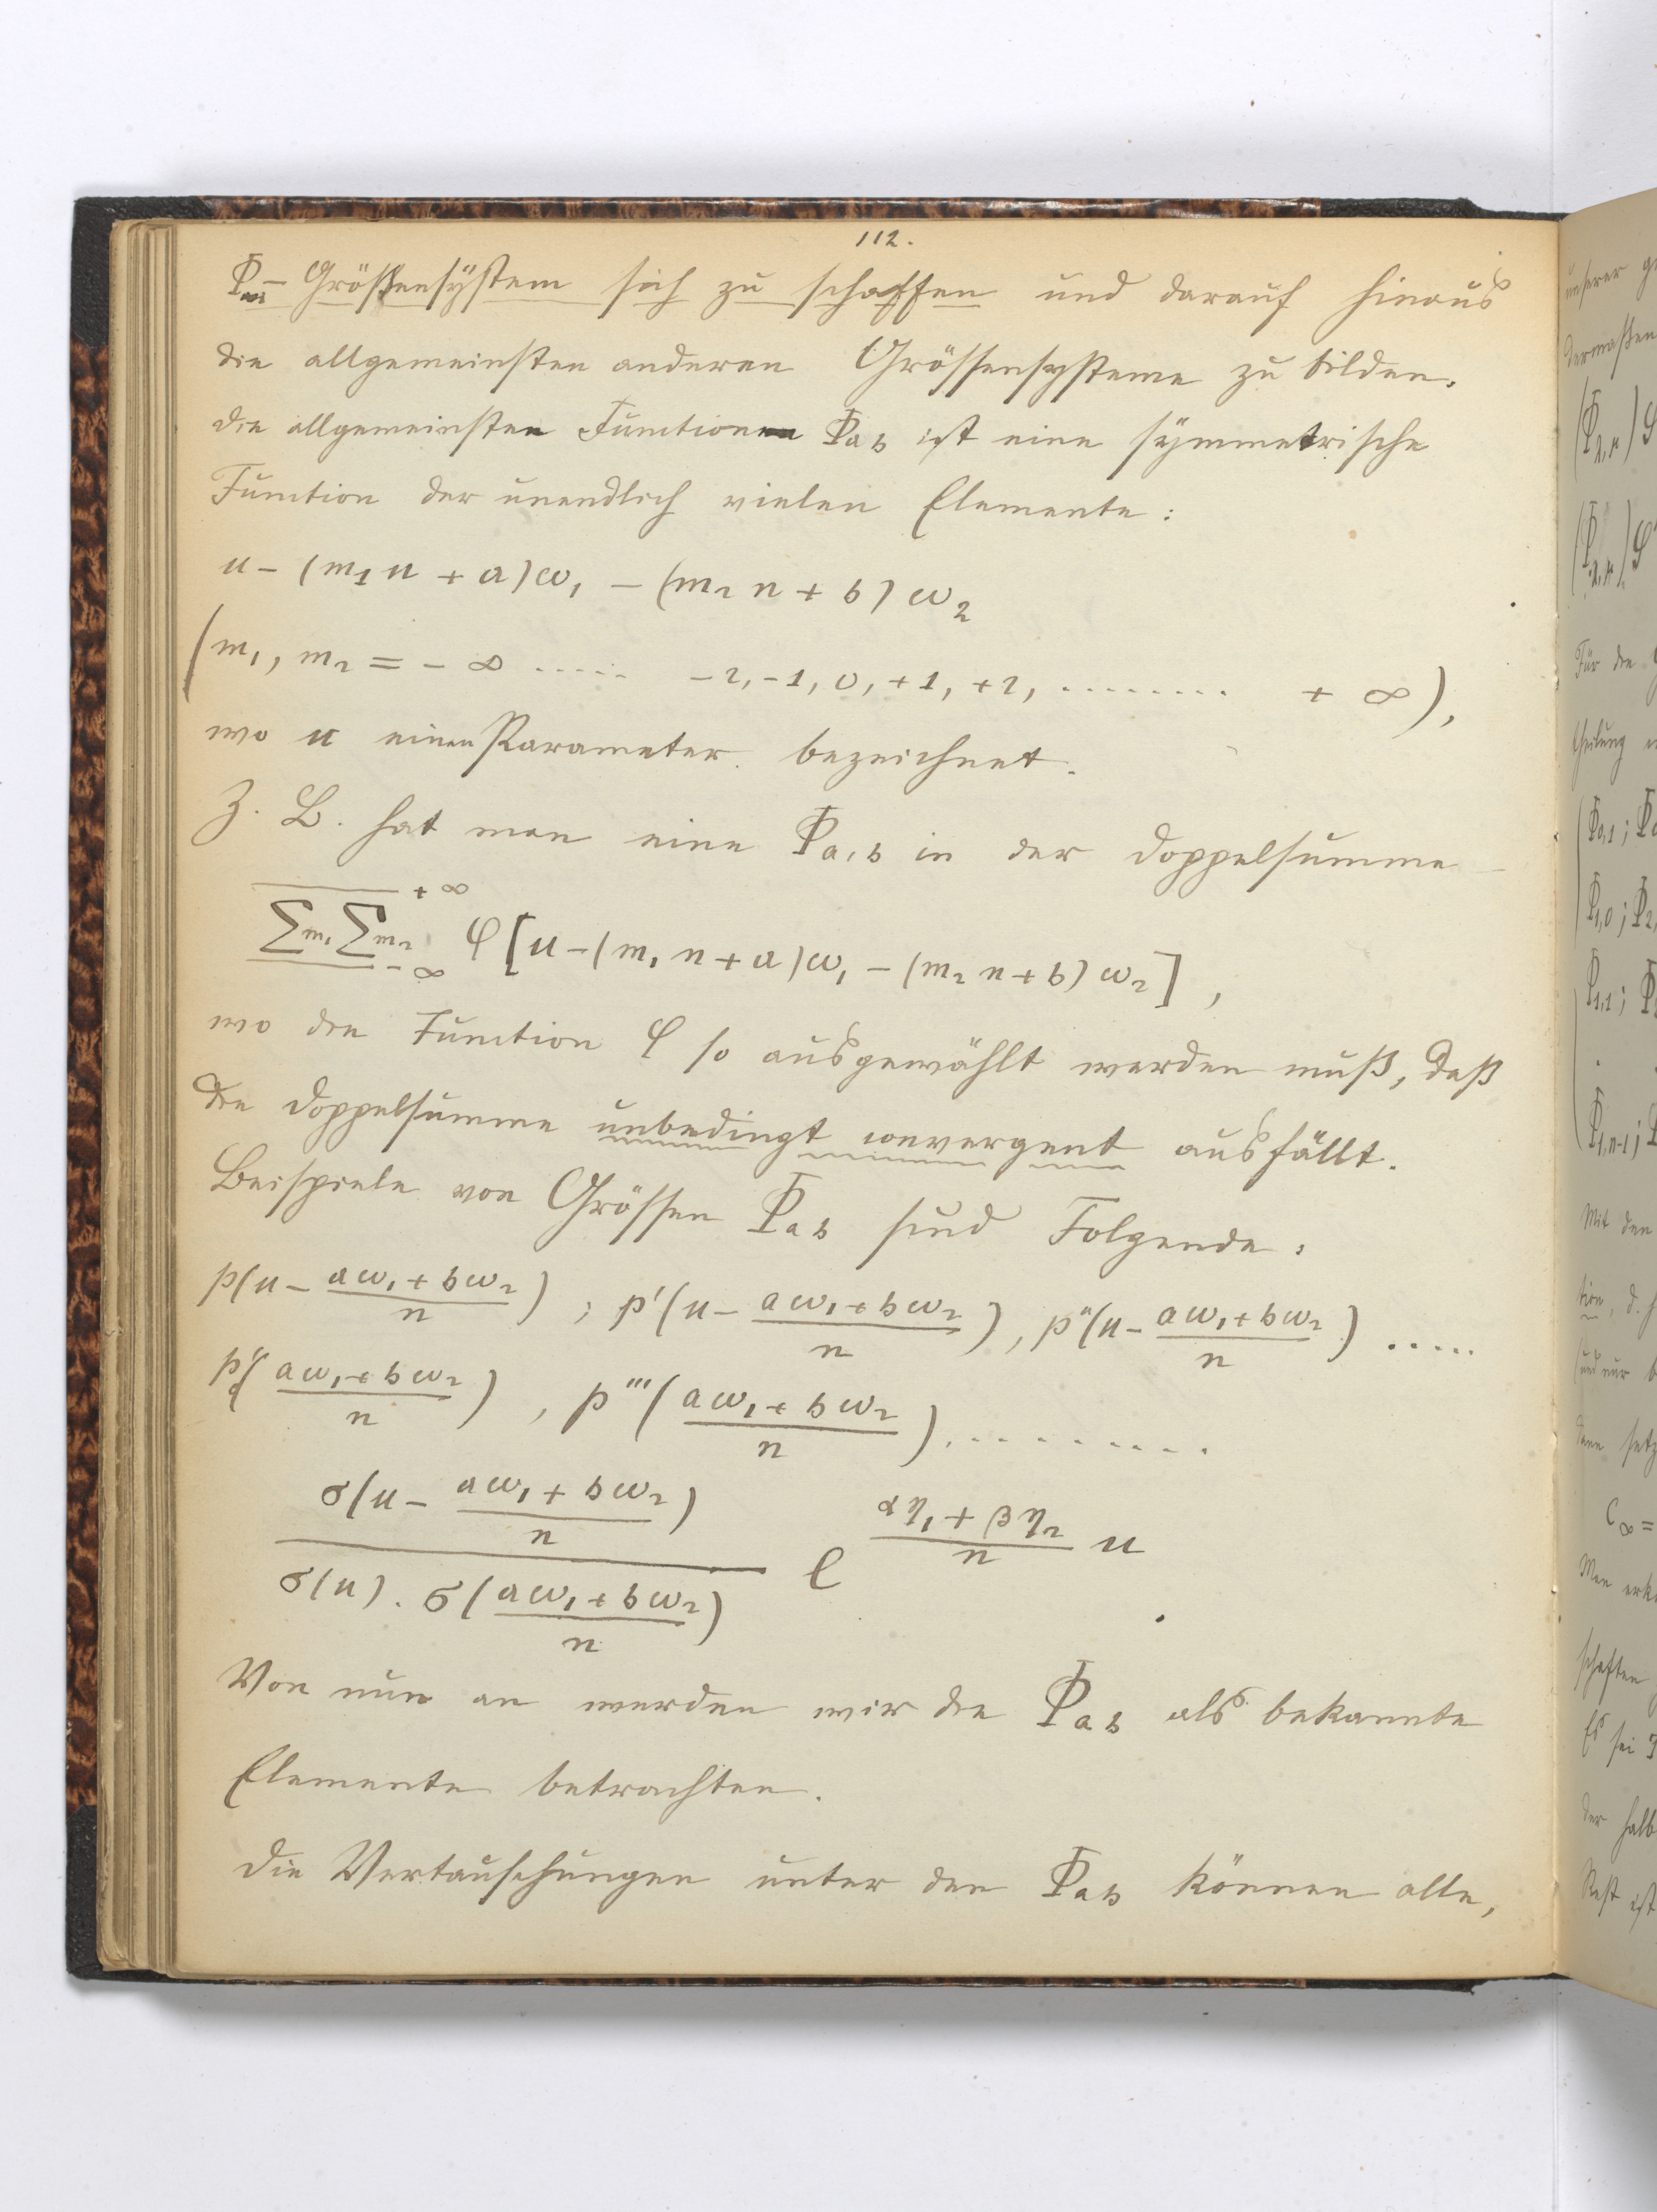 112.
Φ_{ab}- Größensystem sich zu schaffen und darauf hinaus
die allgemeinsten anderen Grössensysteme zu bilden.
Die allgemeinsten Functionen Φ_{ab} ist eine symmetrische
Function der unendlich vielen Elemente:
u - (m₁n + a)ω₁ - (m₂n + b)ω₂
(m₁, m₂ = - ∞ ..... -2, -1, 0, +1, +2, ........ + ∞),
wo u einen Parameter bezeichnet.
Z. B. hat man eine Φ_{a,b} in der Doppelsumme
+ ∞
Σ_{m₁} Σ_{m₂} φ[u - (m₁n + a)ω₁ - (m₂n + b)ω₂],
- ∞
wo die Function φ so ausgewählt werden muß, daß
die Doppelsumme unbedingt convergent ausfällt.
Beispiele von Grössen Φ_{ab} sind Folgende:
p(u - (aω₁ + bω₂)/n); p'(u - (aω₁ + bω₂)/n), p''(u - (aω₁ + bω₂)/n) .....
p''((aω₁ + bω₂)/n), p'''((aω₁ + bω₂)/n), .........
σ(u - (aω₁ + bω₂)/n) / (σ(u) . σ((aω₁ + bω₂)/n)) e^{(αη₁ + βη₂)/n u}.
Von nun an werden wir die Φ_{ab} als bekannte
Elemente betrachten.
Die Vertauschungen unter den Φ_{ab} können alle,